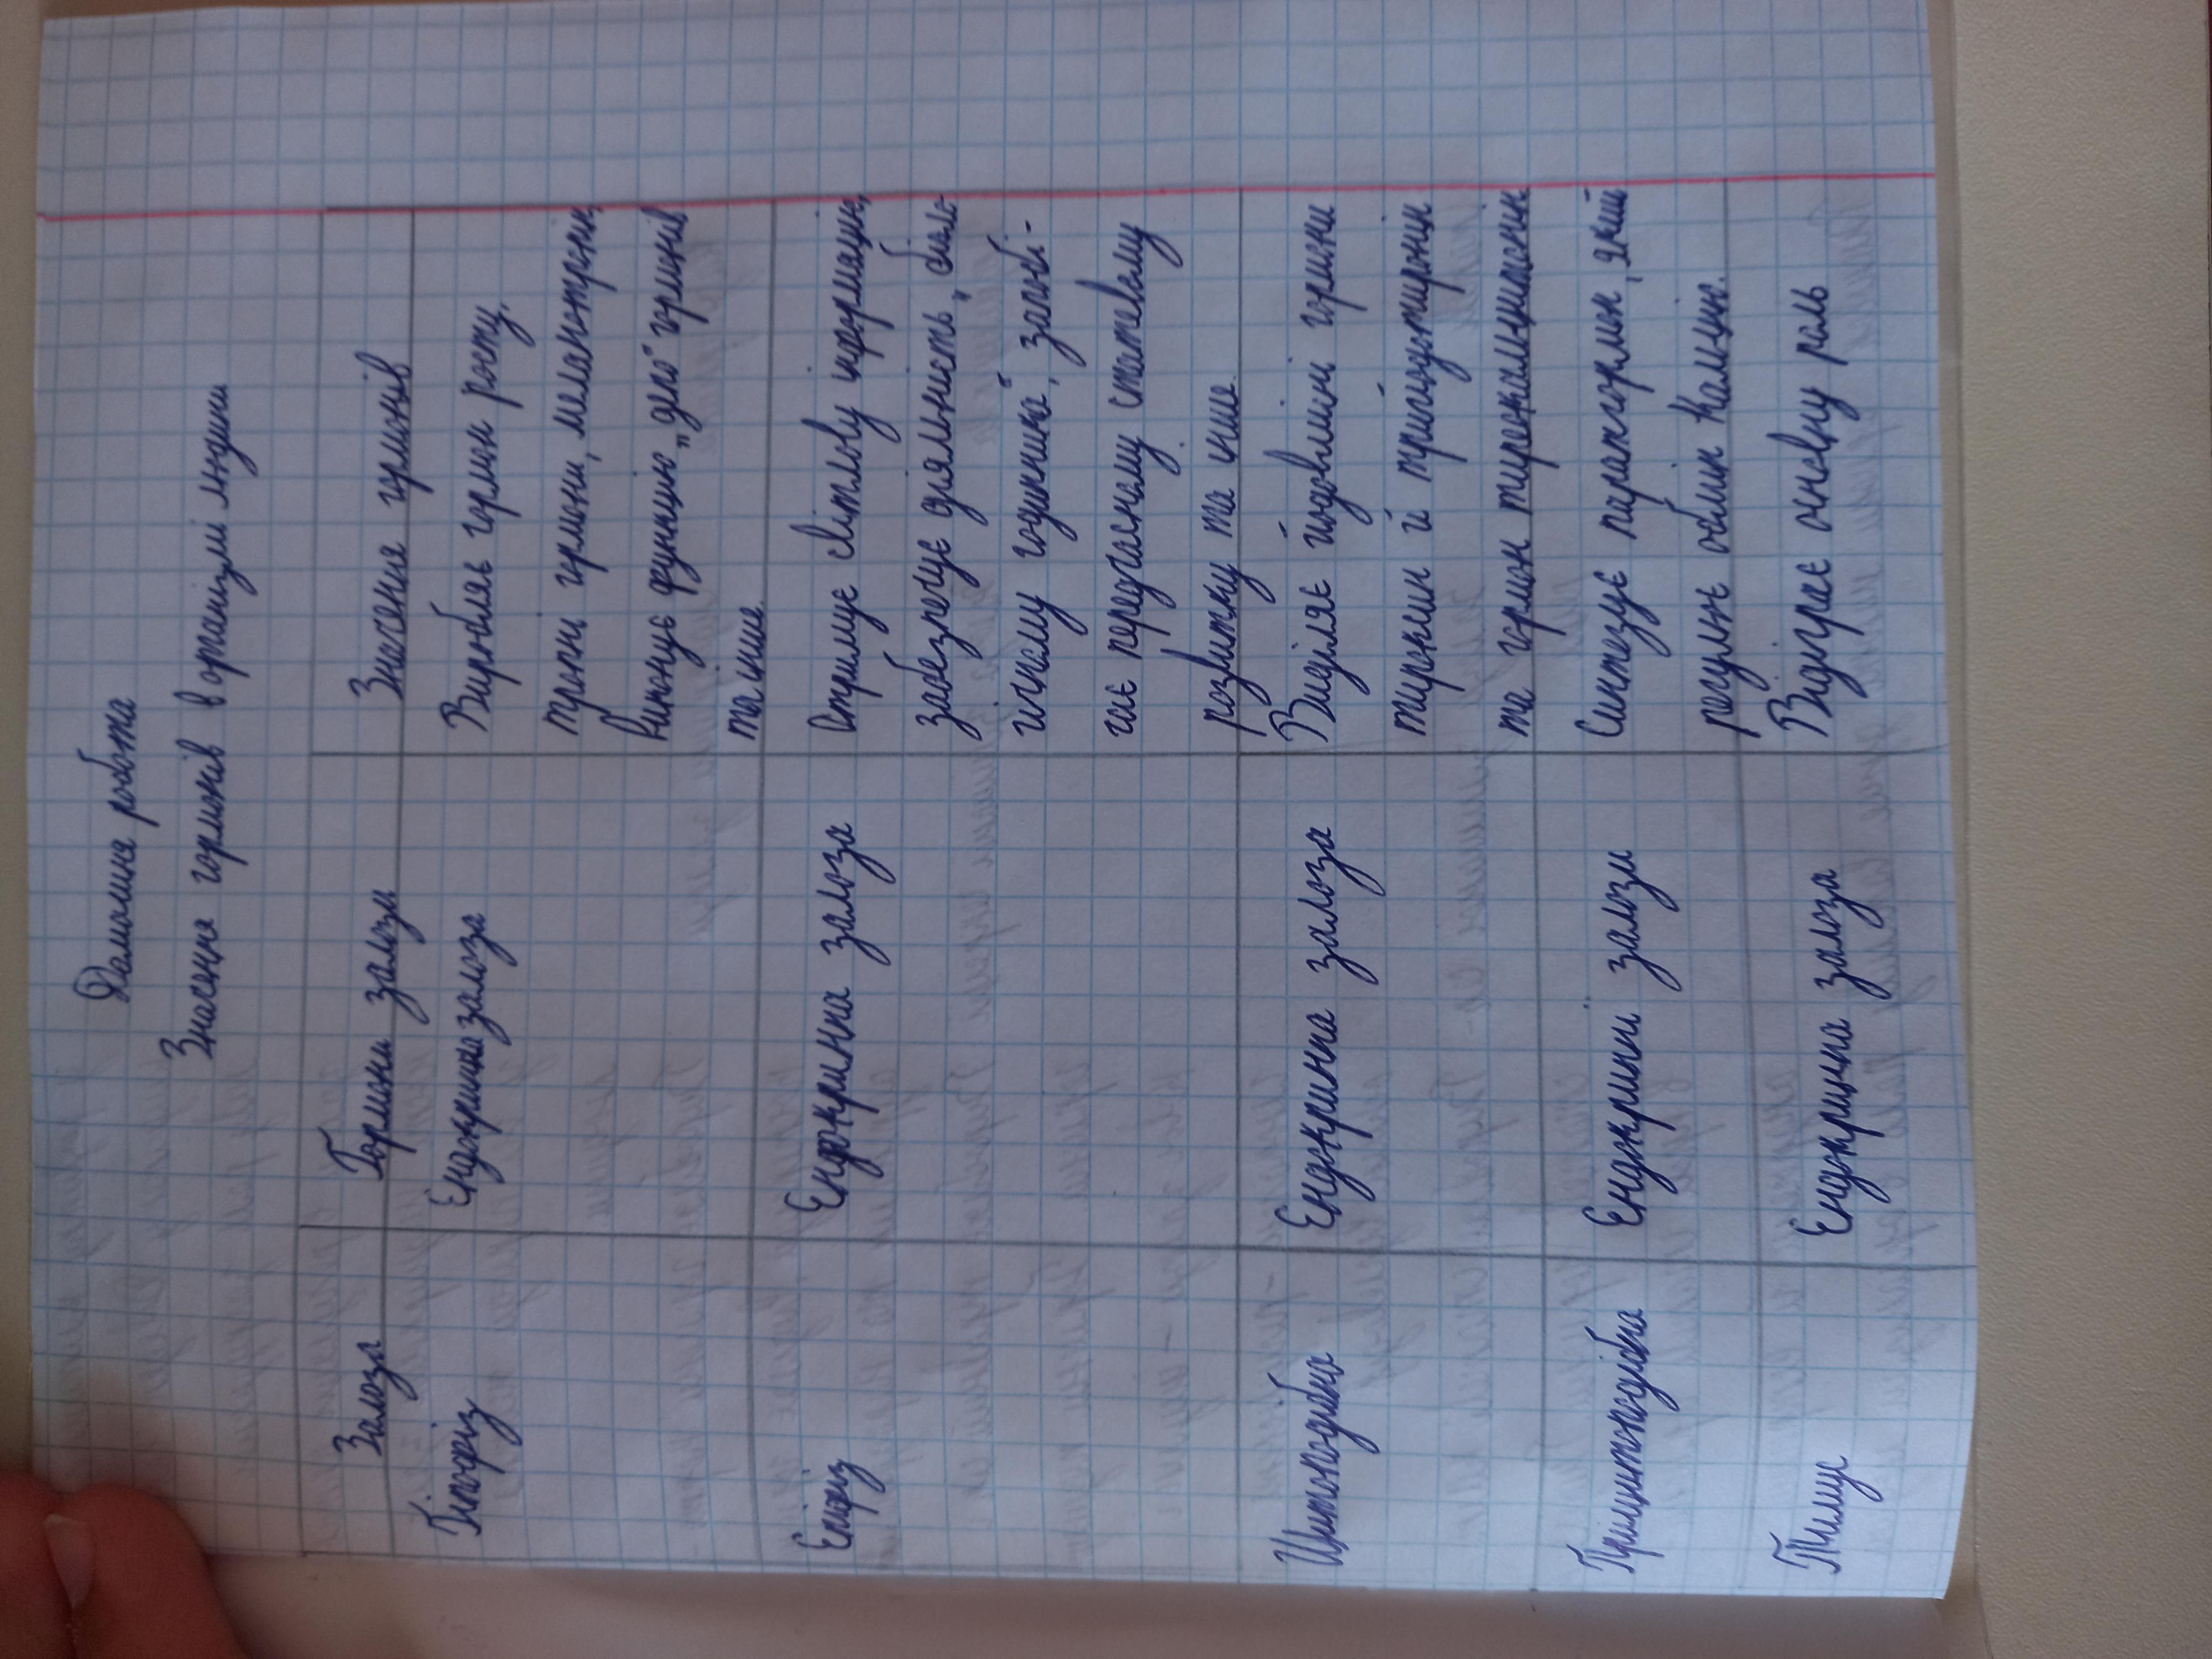 Домашня робота
Значення гормонів в організмі людини
Залоза Гормони залози Значення гормонів
Гіпофіз Ендокринна залоза Виробляє гормон росту,
тропні гормони, меланотропін,
виконує функцію „депо" гормонів
та інше.
Епіфіз Ендокринна залоза Отримує світлову інформацію,
забезпечує діяльність „біоло-
гічному годиннику", запобі-
гає передчасному статевому
розвитку та інше.
Щитоподібна Ендокринна залоза Виділяє йодовмісні гормони
тироксин й трийодтиронін
та гормон тиреокальцитонін
Прищитоподібна Ендокринні залози Синтезує паратгормон, який
регулює обмін Кальцію.
Тимус Ендокринна залоза Відіграє основну роль